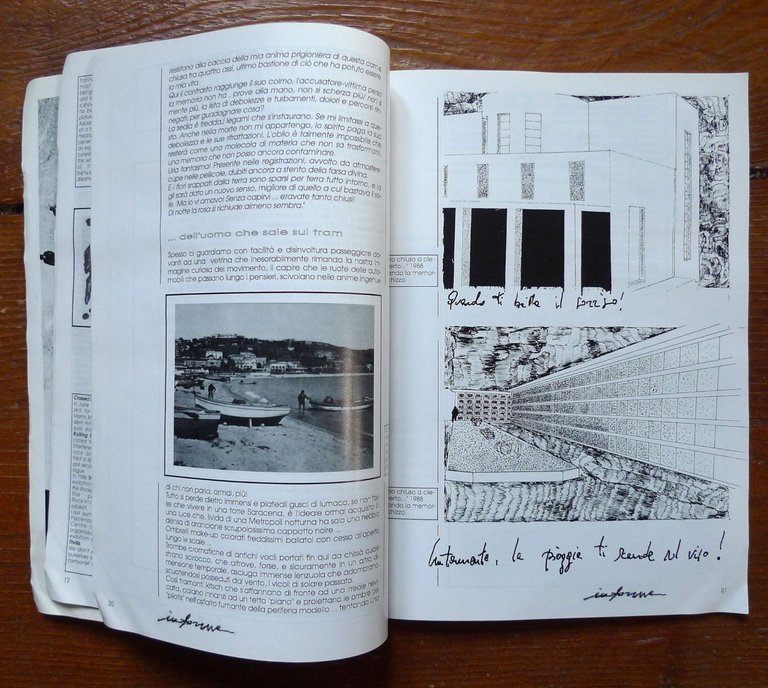 resistono alla caccia della mia anima prigioniera di questa carne
chiusa tra quattro assi, ultimo bastione di ciò che ha potuto essere
la mia vita.
Qui il contrasto raggiunge il suo colmo, l'accusatore-vittima perso
la memoria non ha . prove alla mano, non si scherza più! non si
mente più, la lista di debolezze e turbamenti, dolori e percorsi rin-
negati, per guadagnare cosa?
La sedia è fredda,i legami che s'instaurano. Se mi limitassi a que-
sto. Anche nella morte non mi appartengo, lo spirito paga la sua
debolezza e le sue ritrattazioni. L'oblio è talmente impossibile che
resterà come una molecola di materia che non sa trasformarsi,
una memoria che non posso ancora contaminare.
Urla fantasma! Presente nelle registrazioni, avvolto da atmosfere
cupe nelle pellicole, dubiti ancora a stento della farsa divina.
E i fiori strappati dalla terra sono sparsi per terra tutto intorno, e la
gli sarà dato un nuovo senso, migliore di quello a cui bastava il so-
le. Ma io vi amavo! Senza capirvi ... eravate tanto chiusi!
Di notte la rosa si richiude:almeno sembra."
... dell'uomo che sale sul tram
Spesso ci guardiamo con facilità e disinvoltura passeggiare da-
vanti ad una vetrina che inesorabilmente rimanda la nostra im-
magine curiosa del movimento, il capire che le ruote delle auto-
mobili che passano lungo i pensieri, scivolano nelle anime ingenue
di chi non parla, ormai, più!
Tutto si perde dietro immensi e plateali gusci di lumaca, se non fos-
se che vivere in una torre Saracena, è l'ideale ormai acquisito in
una luce che, livida di una Metropoli notturna ha solo una nebbia
densa di arancione scrupolosissimo cappotto noire ...
Ombrelli make-up colorati freddissimi ballatoi con cesso all'aperto
lungo le scale ...
Trombe cromatiche di antichi vocii portati fin qui da chissà quale
strano scirocco, che altrove, forse, e sicuramente in un altra di-
mensione temporale, asciuga immense lenzuola che addobbano
scuotendosi posseduti dal vento, i vicoli di solare passato.
Così frantumi kitsch che s'affannano di fronte ad una media nevi-
cata, calano innanzi ad un tetto "piano" e proiettano le ombre dei
"piloti" nell'asfalto fumante della periferia modello ... tentando una
20
informe
12
io chiuso a cie-
perto..." 1988
ando la memor-
chizzo
Quando ti brilla il sorriso!
io chiuso a cie-
perto..." 1988
ando la memor-
chizzo
la pioggia ti scende sul viso!
informe
21